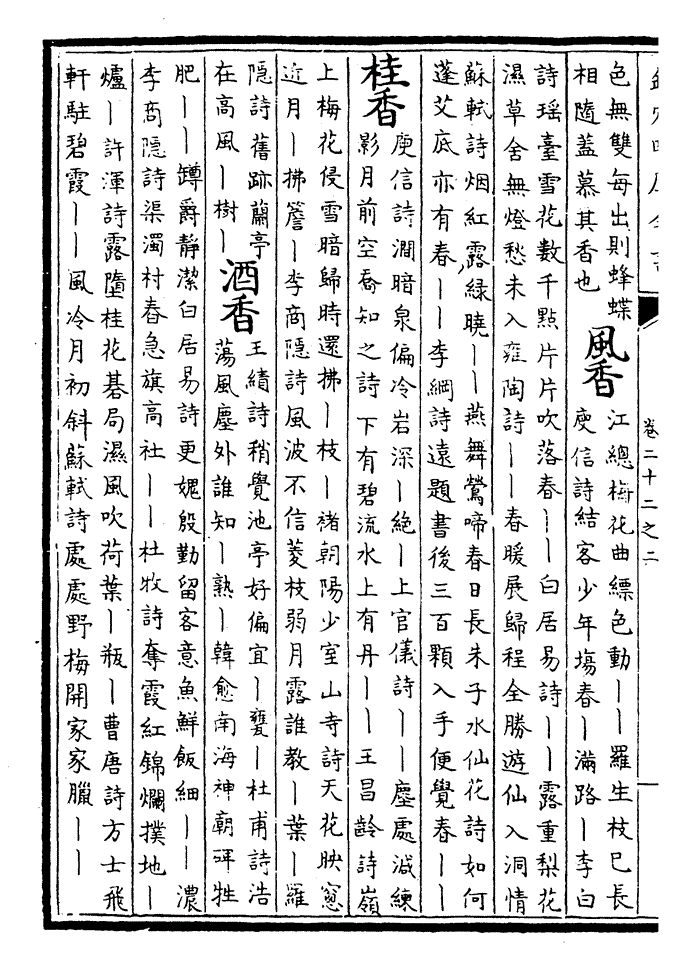 卷二十二之二
色無雙每出則蜂蝶
相隨蓋慕其香也
風香
江總梅花曲縹色動丨丨羅生枝巳長
庾信詩結客少年塲春丨滿路丨李白
詩瑤臺雪花數千點片片吹落春丨丨白居易詩丨丨露重梨花
濕草舍無燈愁未入雍陶詩丨丨春暖展歸程全勝遊仙入洞情
蘇軾詩烟紅露綠曉丨丨燕舞鶯啼春日長朱子水仙花詩如何
蓬艾底亦有春丨丨李綱詩遠題書後三百顆入手便覺春丨丨
桂香
庾信詩澗暗泉偏冷岩深丨絶丨上官儀詩丨丨塵處減練
影月前空喬知之詩下有碧流水上有丹丨丨王昌齡詩嶺
上梅花侵雪暗歸時還拂丨枝丨褚朝陽少室山寺詩天花映窓
近月丨拂簷丨李商隱詩風波不信菱枝弱月露誰教丨葉丨羅
隱詩舊跡蘭亭
在高風丨樹丨
酒香
王績詩稍覺池亭好偏宜丨甕丨杜甫詩浩
蕩風塵外誰知丨熟丨韓愈南海神廟碑牲
肥丨丨罇爵靜潔白居易詩更媿殷勤留客意魚鮮飯細丨丨濃
李商隱詩渠濁村春急旗高社丨丨杜牧詩奪霞紅錦爛撲地丨
爐丨許渾詩露墮桂花碁局濕風吹荷葉丨瓶丨曹唐詩方士飛
軒駐碧霞丨丨風冷月初斜蘇軾詩處處野梅開家家臘丨丨